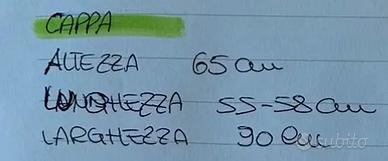 CAPPA
ALTEZZA 65 cm
LUNGHEZZA 55-58 cm
LARGHEZZA 90 cm
subito